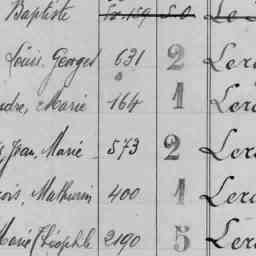 Baptiste
Louis Georges 631 2 Ler
dre, Marie 164 1 Ler
, Jean Marie 573 2 Ler
ois, Mathurin 400 1 Ler
Marie Théophile 2190 5 Ler